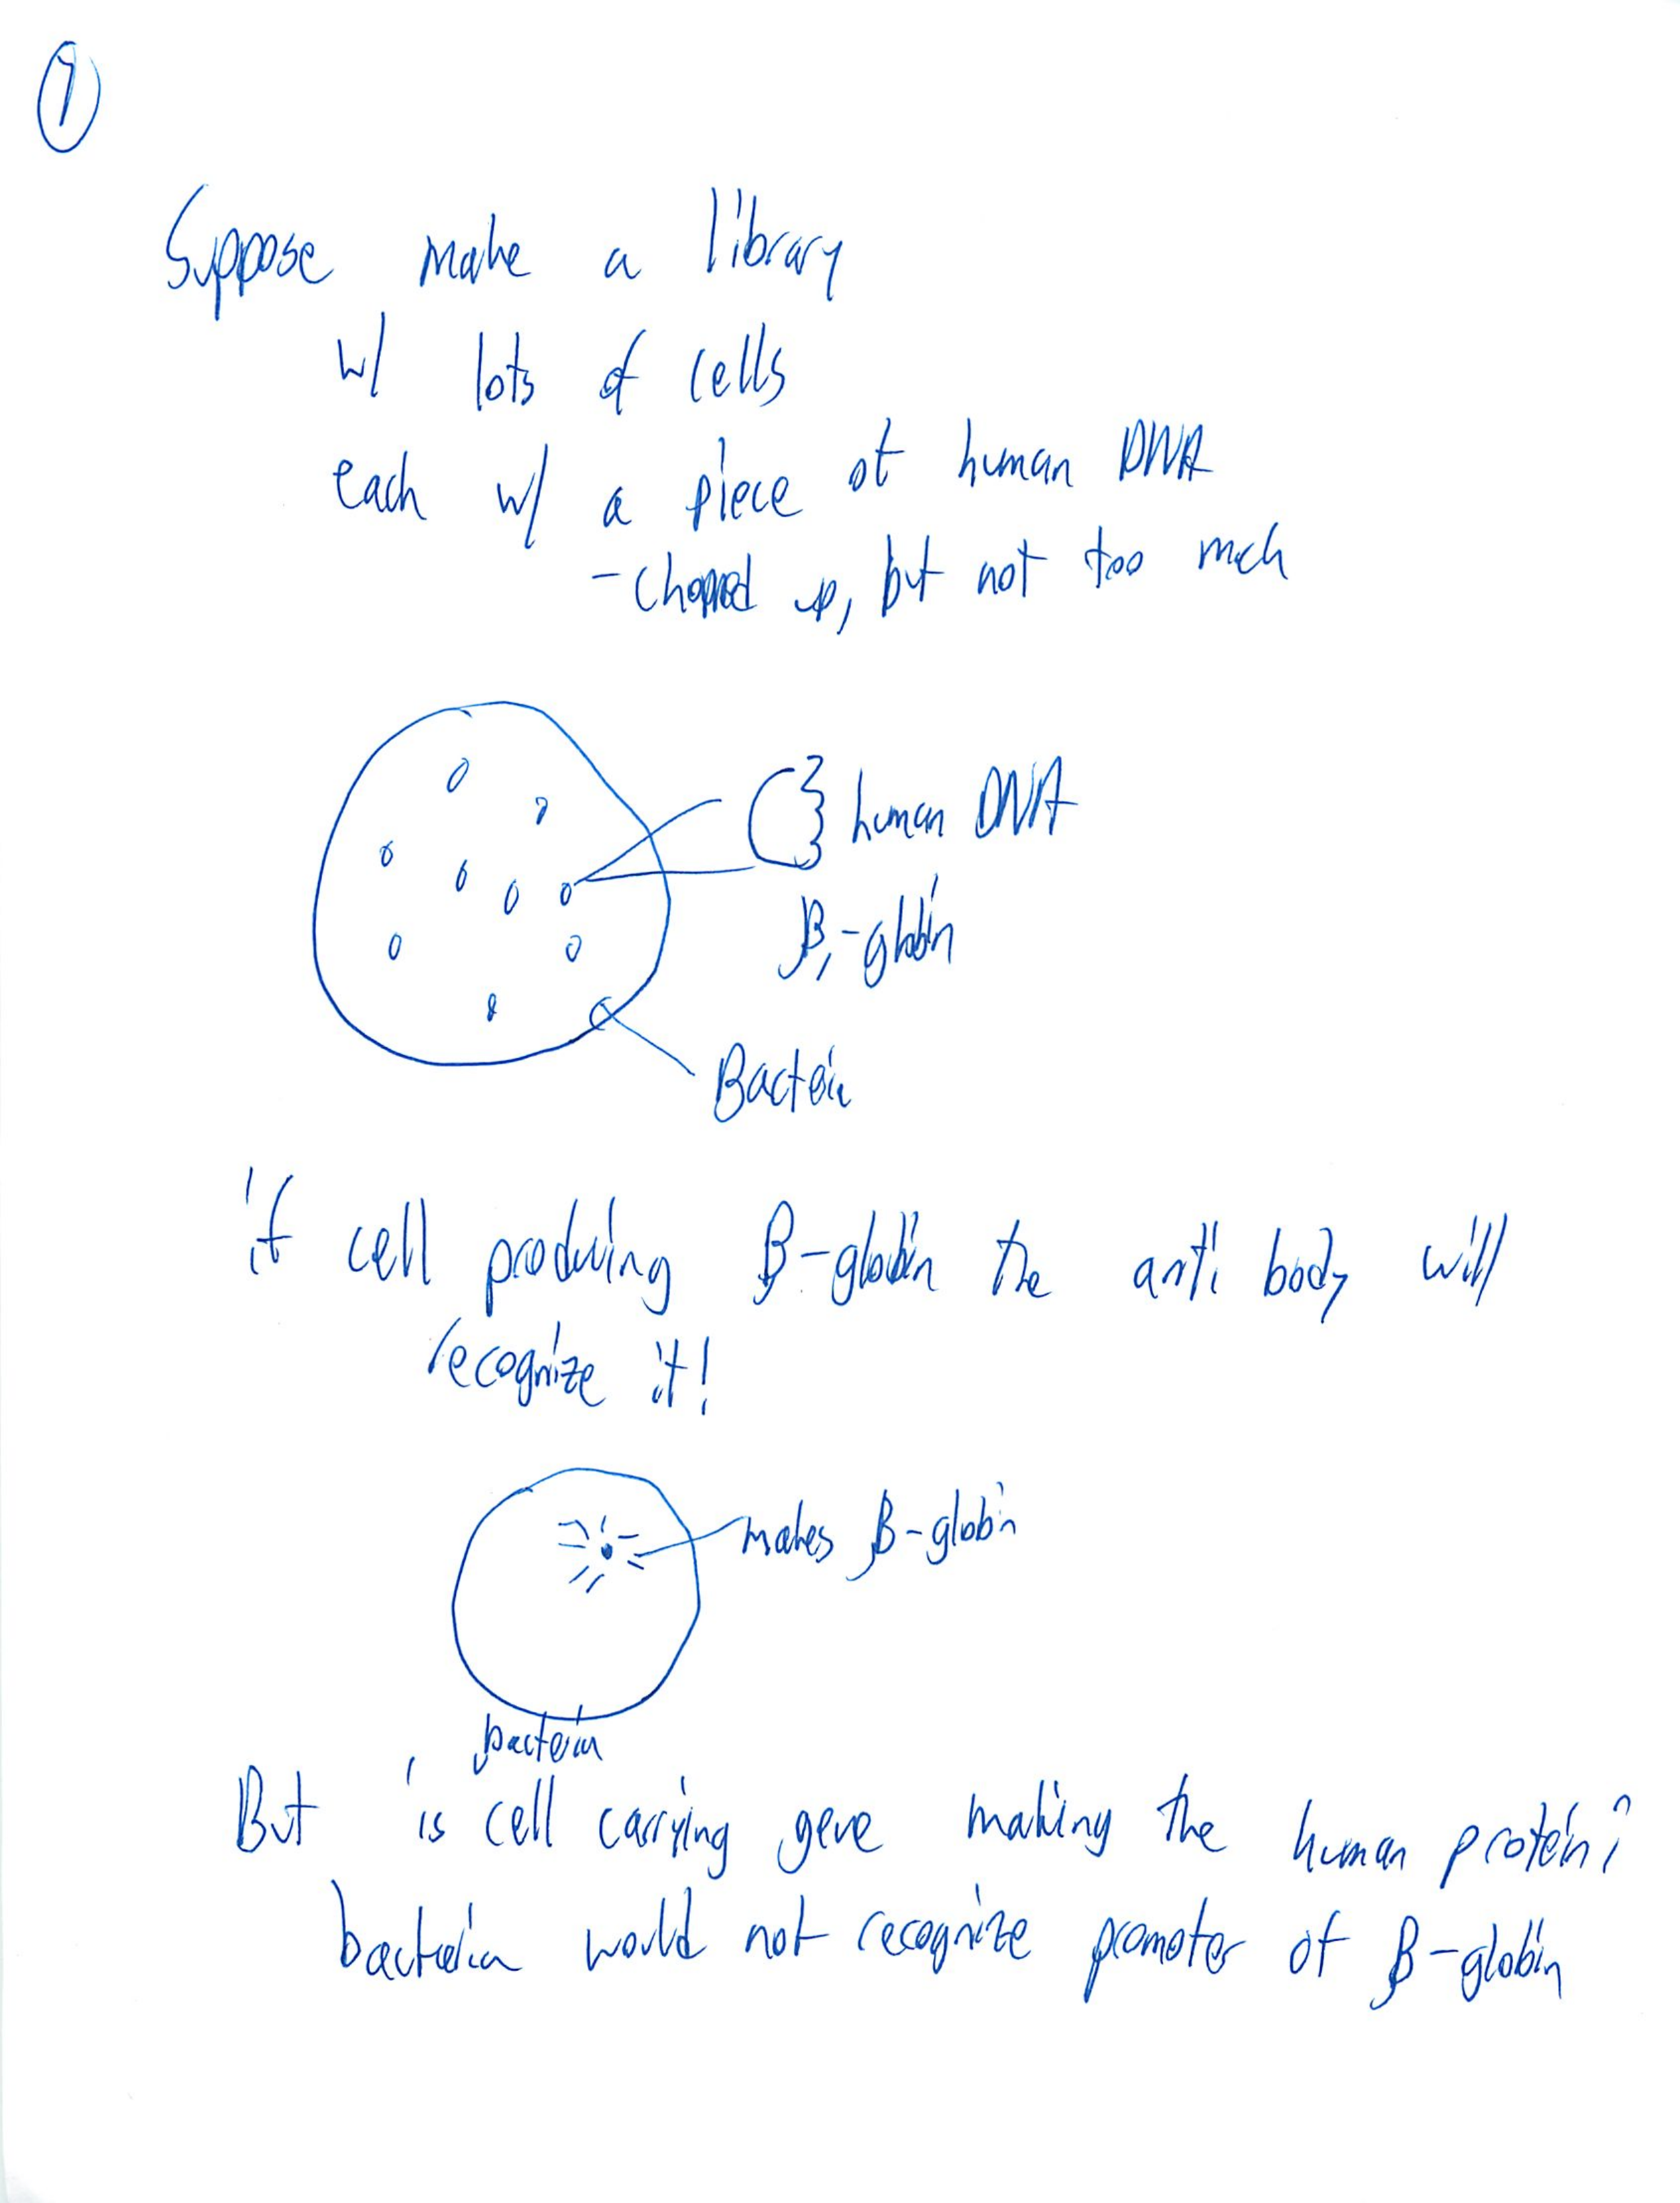 ①
Suppose make a library
w/ lots of cells
each w/ a piece of human DNA
- chopped up, but not too much
human DNA
β-globin
Bacteria
if cell producing β-globin the anti body will
recognize it!
makes β-globin
bacteria
But is cell carrying gene making the human protein?
bacteria would not recognize promoter of β-globin